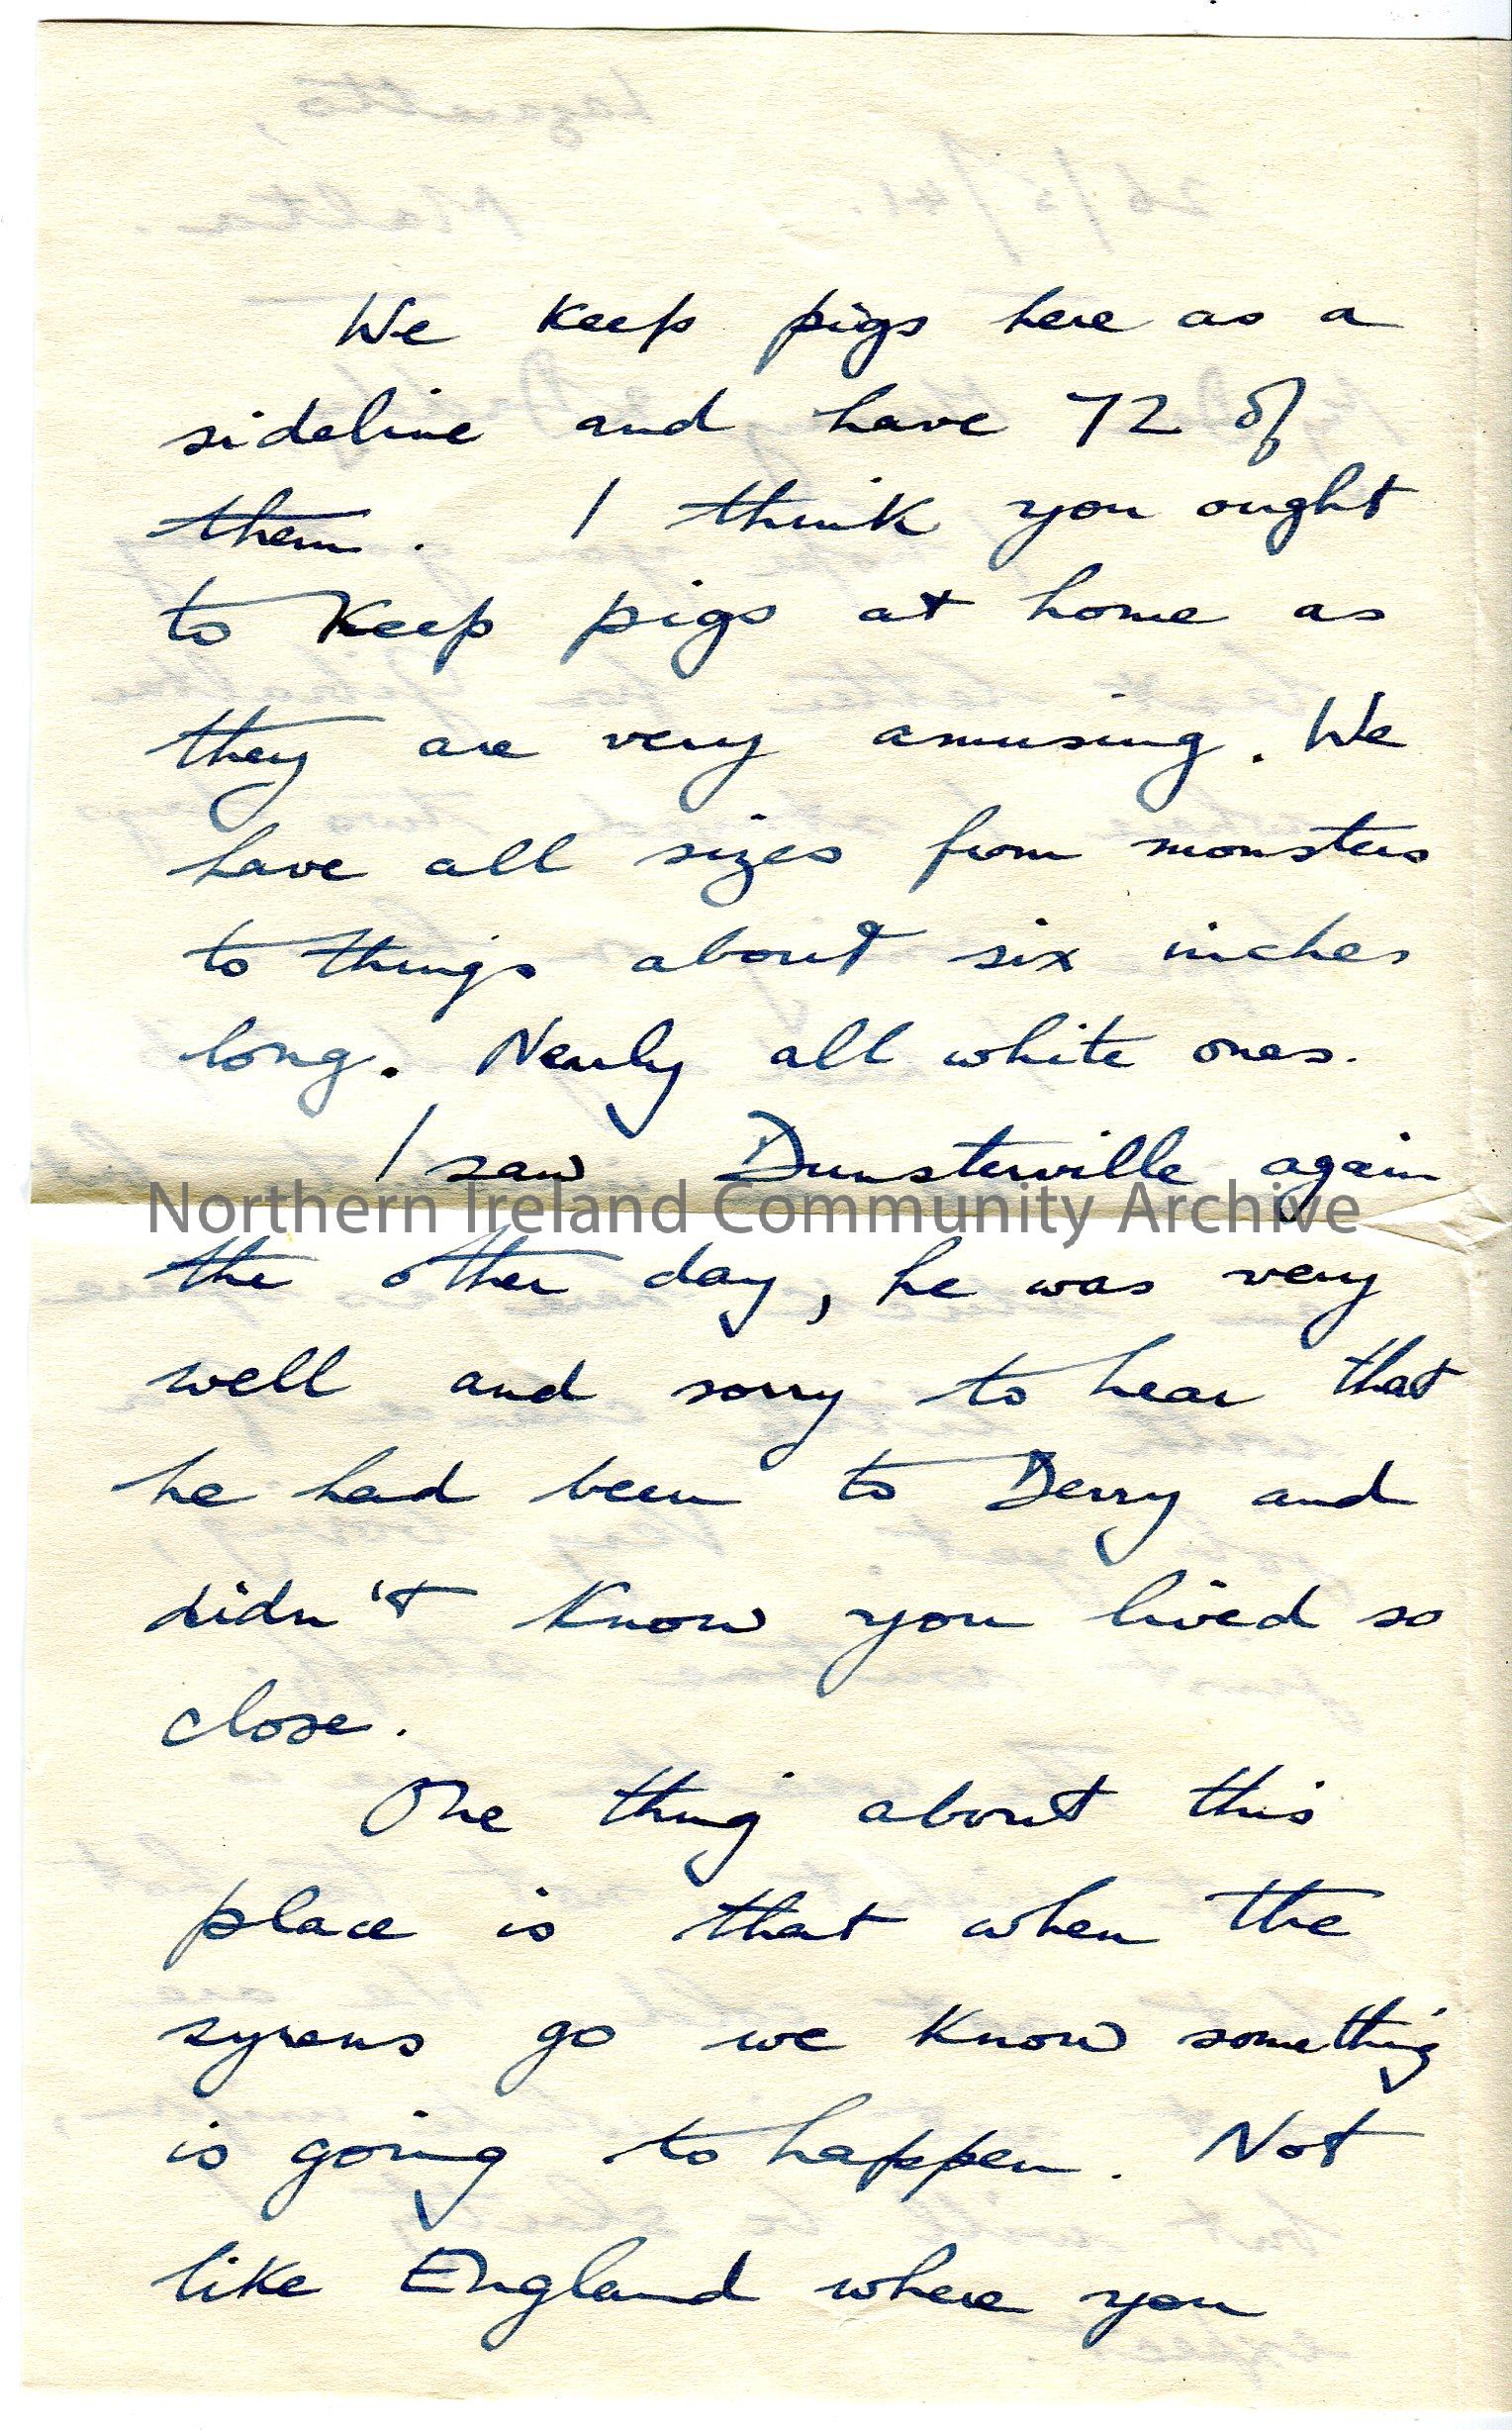 We keep pigs here as a
sideline and have 72 of
them. I think you ought
to keep pigs at home as
they are very amusing. We
have all sizes from monsters
to things about six inches
long. Nearly all white ones.
I saw Dunsterville again
Northern Ireland Community Archive
the other day, he was very
well and sorry to hear that
he had been to Derry and
didn't know you lived so
close.
One thing about this
place is that when the
syrens go we know something
is going to happen. Not
like England where you